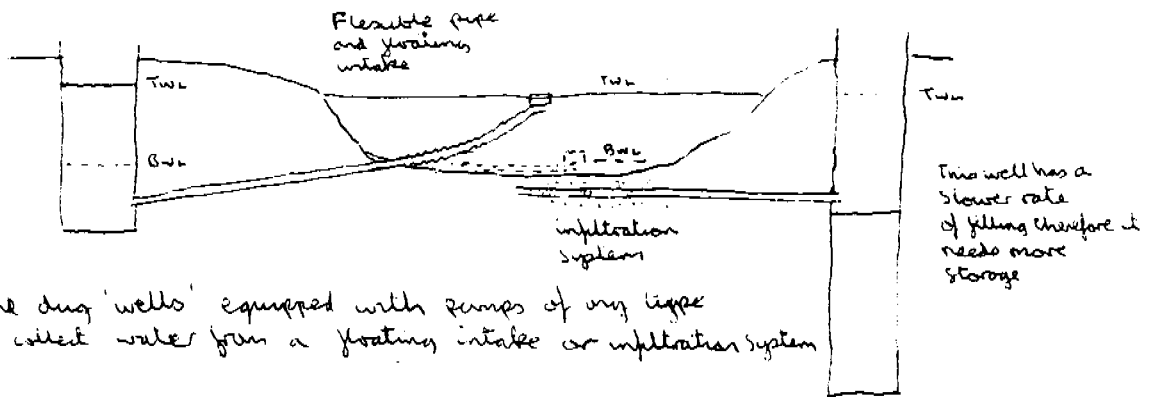 Flexible pipe
and floating
intake
TWL
TWL
TWL
BWL
BWL
This well has a
slower rate
of filling therefore it
needs more
storage
infiltration
system
dug 'wells' equipped with pumps of any type
collect water from a floating intake or infiltration system